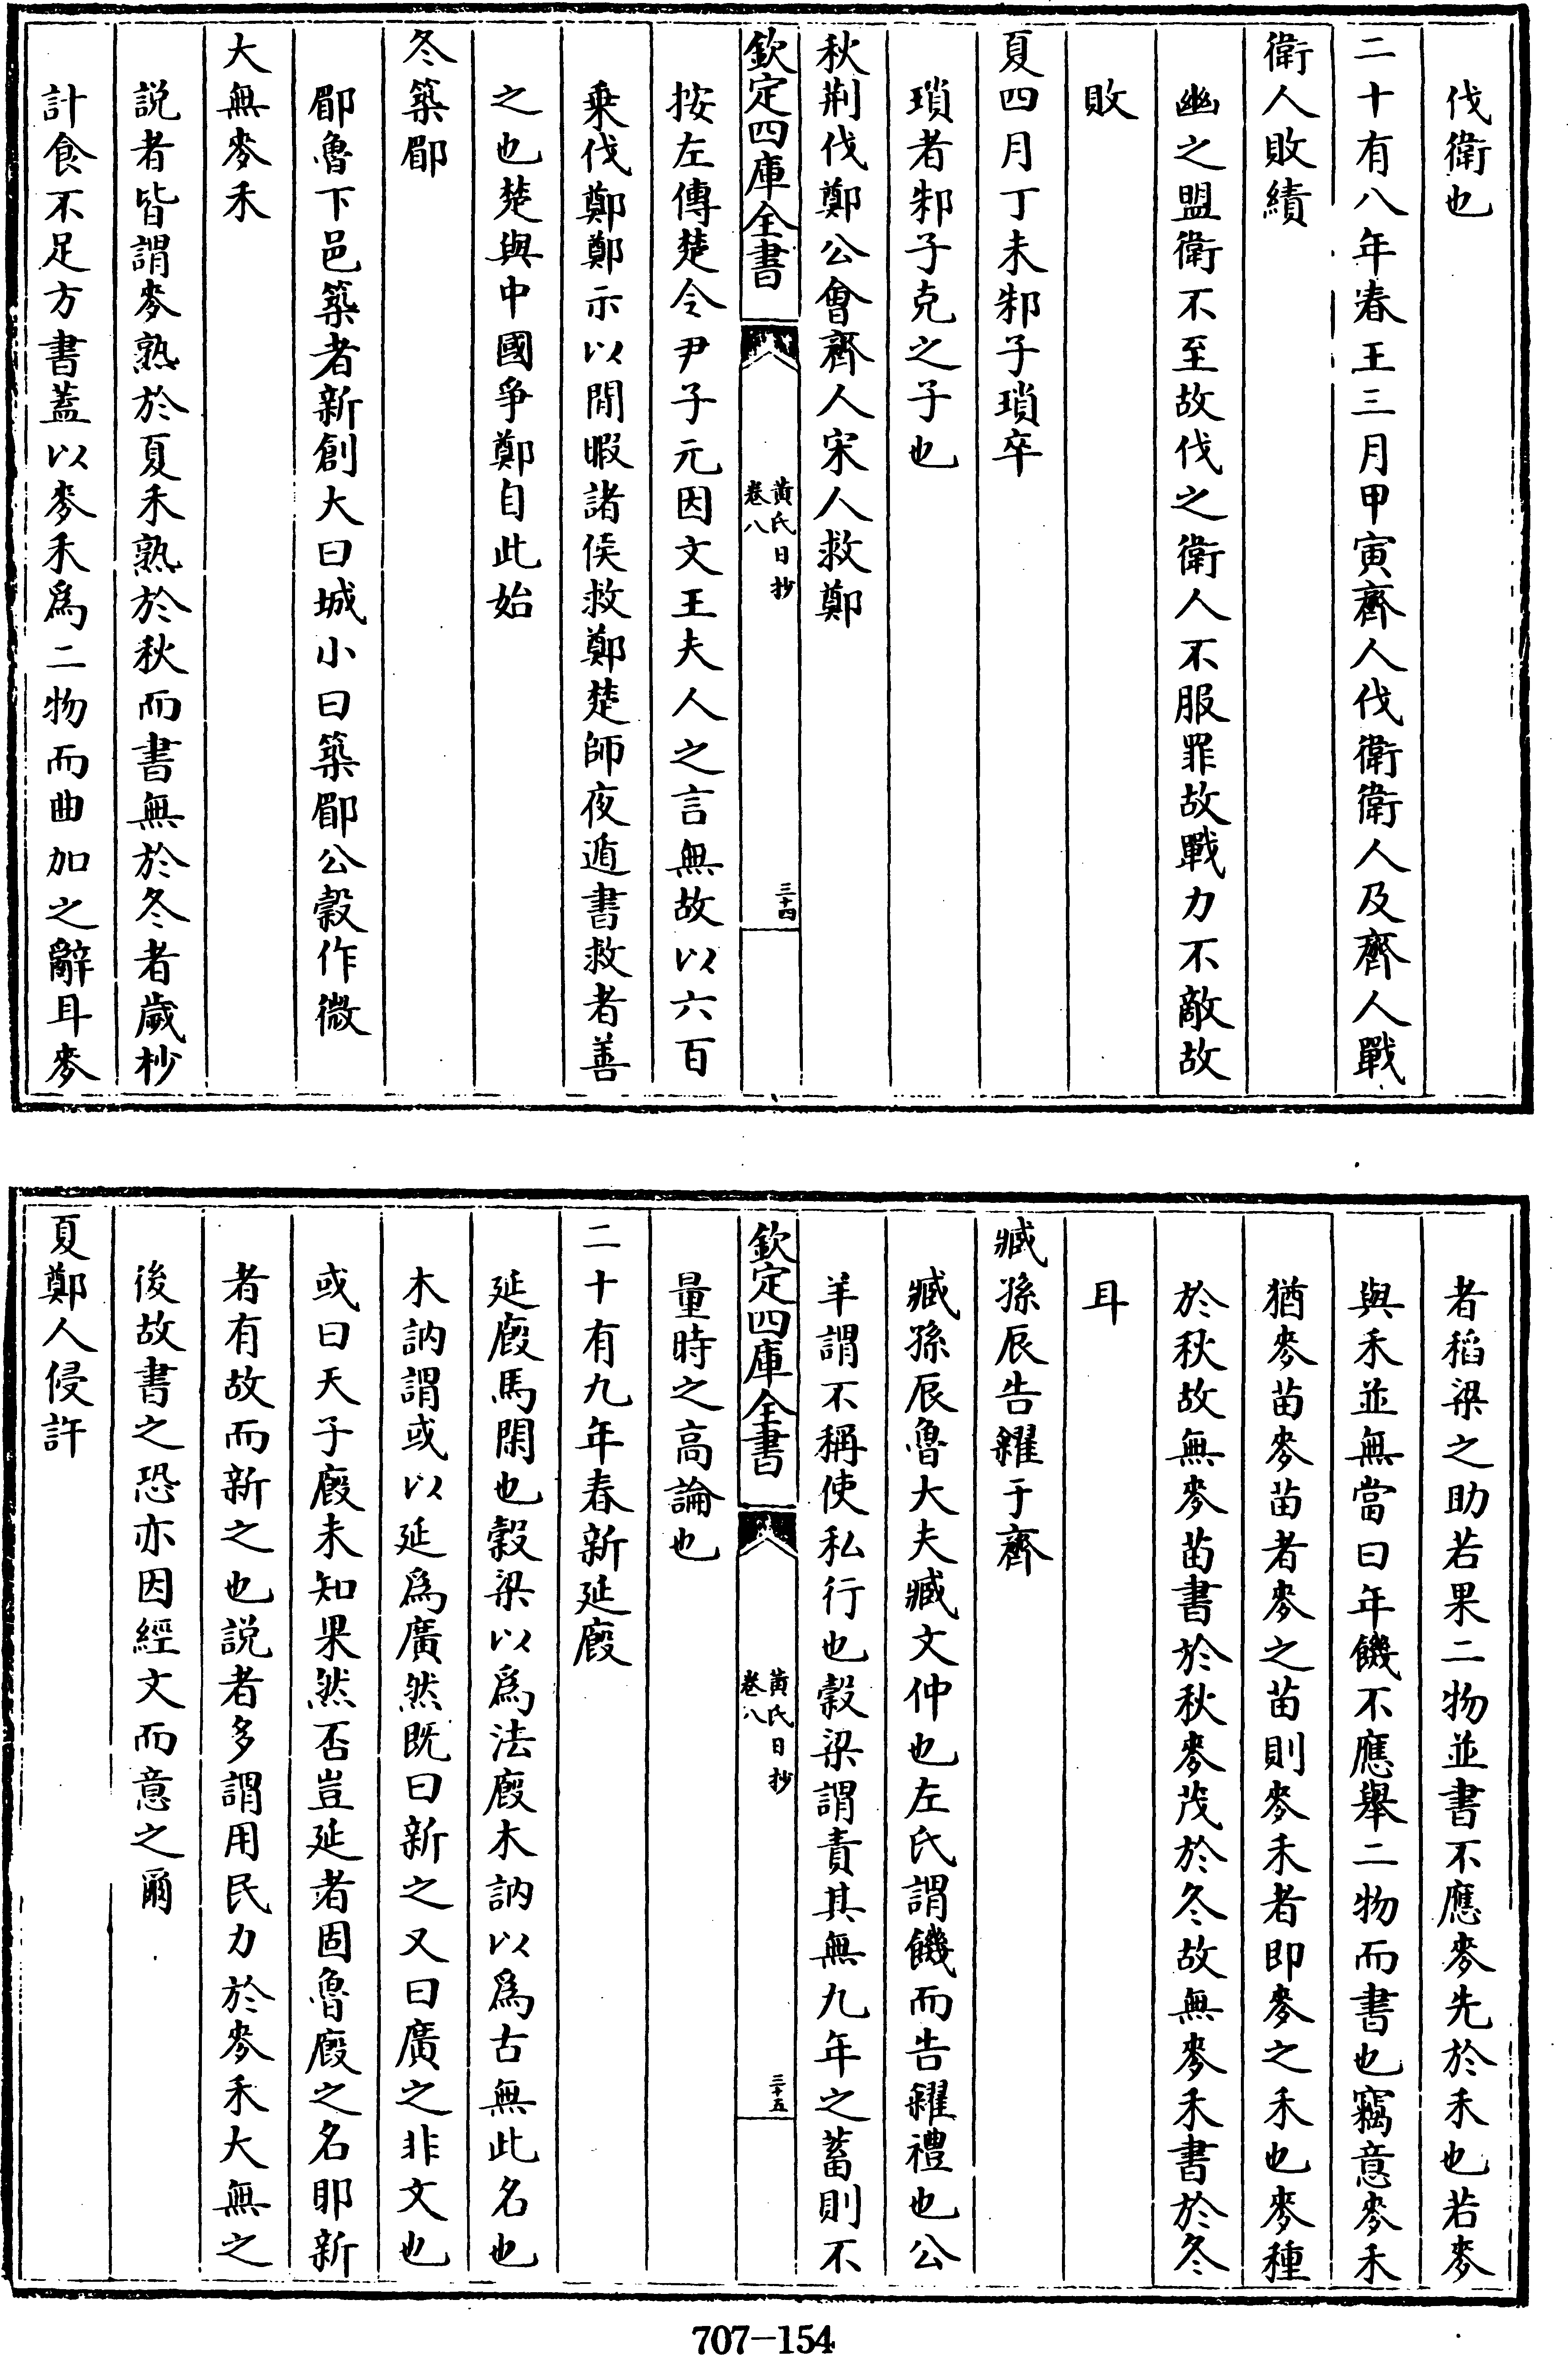 伐衛也
二十有八年春王三月甲寅齊人伐衛衛人及齊人戰
衛人敗績
幽之盟衛不至故伐之衛人不服罪故戰力不敵故
敗
夏四月丁未邾子瑣卒
瑣者邾子克之子也
秋荆伐鄭公會齊人宋人救鄭
欽定四庫全書
黃氏日抄
卷八
三十四
按左傳楚令尹子元因文王夫人之言無故以六百
乗伐鄭鄭示以閒暇諸侯救鄭楚師夜遁書救者善
之也楚與中國爭鄭自此始
冬築郿
郿魯下邑築者新創大曰城小曰築郿公穀作微
大無麥禾
説者皆謂麥熟於夏禾熟於秋而書無於冬者歲杪
計食不足方書蓋以麥禾爲二物而曲加之辭耳麥
者稻梁之助若果二物並書不應麥先於禾也若麥
與禾並無當曰年饑不應舉二物而書也竊意麥禾
猶麥苗麥苗者麥之苗則麥禾者即麥之禾也麥種
於秋故無麥苗書於秋麥茂於冬故無麥禾書於冬
耳
臧孫辰告糴于齊
臧孫辰魯大夫臧文仲也左氏謂饑而告糴禮也公
羊謂不稱使私行也穀梁謂責其無九年之蓄則不
欽定四庫全書
黃氏日抄
卷八
三十五
量時之高論也
二十有九年春新延廏
延廏馬閑也穀梁以爲法廏木訥以爲古無此名也
木訥謂或以延爲廣然既曰新之又曰廣之非文也
或曰天子廏未知果然否豈延者固魯廏之名耶新
者有故而新之也説者多謂用民力於麥禾大無之
後故書之恐亦因經文而意之爾
夏鄭人侵許
707-154